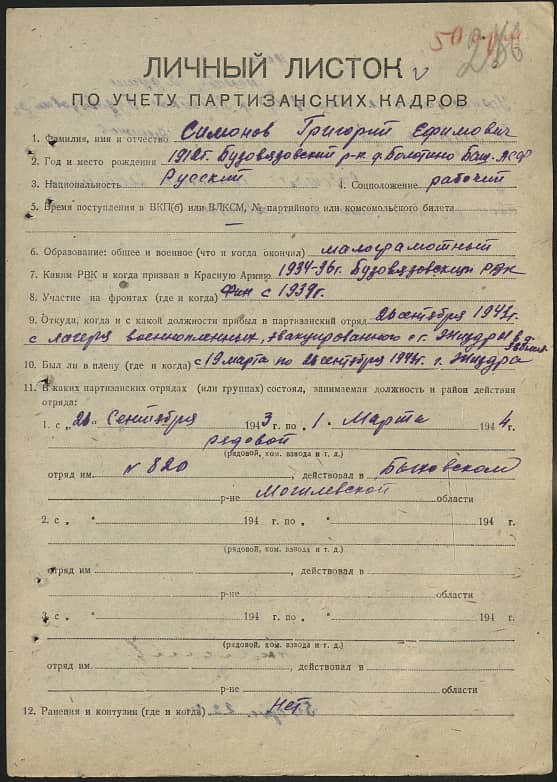 ЛИЧНЫЙ ЛИСТОК
ПО УЧЕТУ ПАРТИЗАНСКИХ КАДРОВ
1. Фамилия, имя и отчество Симонов Григорий Ефимович
2. Год и место рождения 1912г. Бузовязовский р-н д. Болотино Баш. АССР
3. Национальность Русский 4. Соцположение рабочий
5. Время поступления в ВКП(б) или ВЛКСМ, № партийного или комсомольского билета
—
6. Образование: общее и военное (что и когда окончил) малограмотный
7. Каким РВК и когда призван в Красную Армию 1934-36г. Бузовязовским РВК
8. Участие на фронтах (где и когда) Фин с 1939г.
9. Откуда, когда и с какой должности прибыл в партизанский отряд 26 сентября 1943г.
с лагеря военнопленных, эвакуированного с г. Жиздры в д.
10. Был ли в плену (где и когда) с 19 марта по 26 сентября 1943г. г. Жиздра
11. В каких партизанских отрядах (или группах) состоял, занимаемая должность и район действия
отряда:
1. с „26" Сентября 1943 г. по „1. Марта 1944 г.
рядовой
(рядовой, ком. взвода и т. д.)
отряд им. № 820, действовал в Быховском
р-не Могилевской области
2. с „ " 194 г. по „ " 194 г.
(рядовой, ком. взвода и т. д.)
отряд им , действовал в
р-не области
3. с „ " 194 г. по „ " 194 г.
(рядовой, ком. взвода и т. д.)
отряд им. , действовал в
р-не области
12. Ранения и контузии (где и когда) Нет